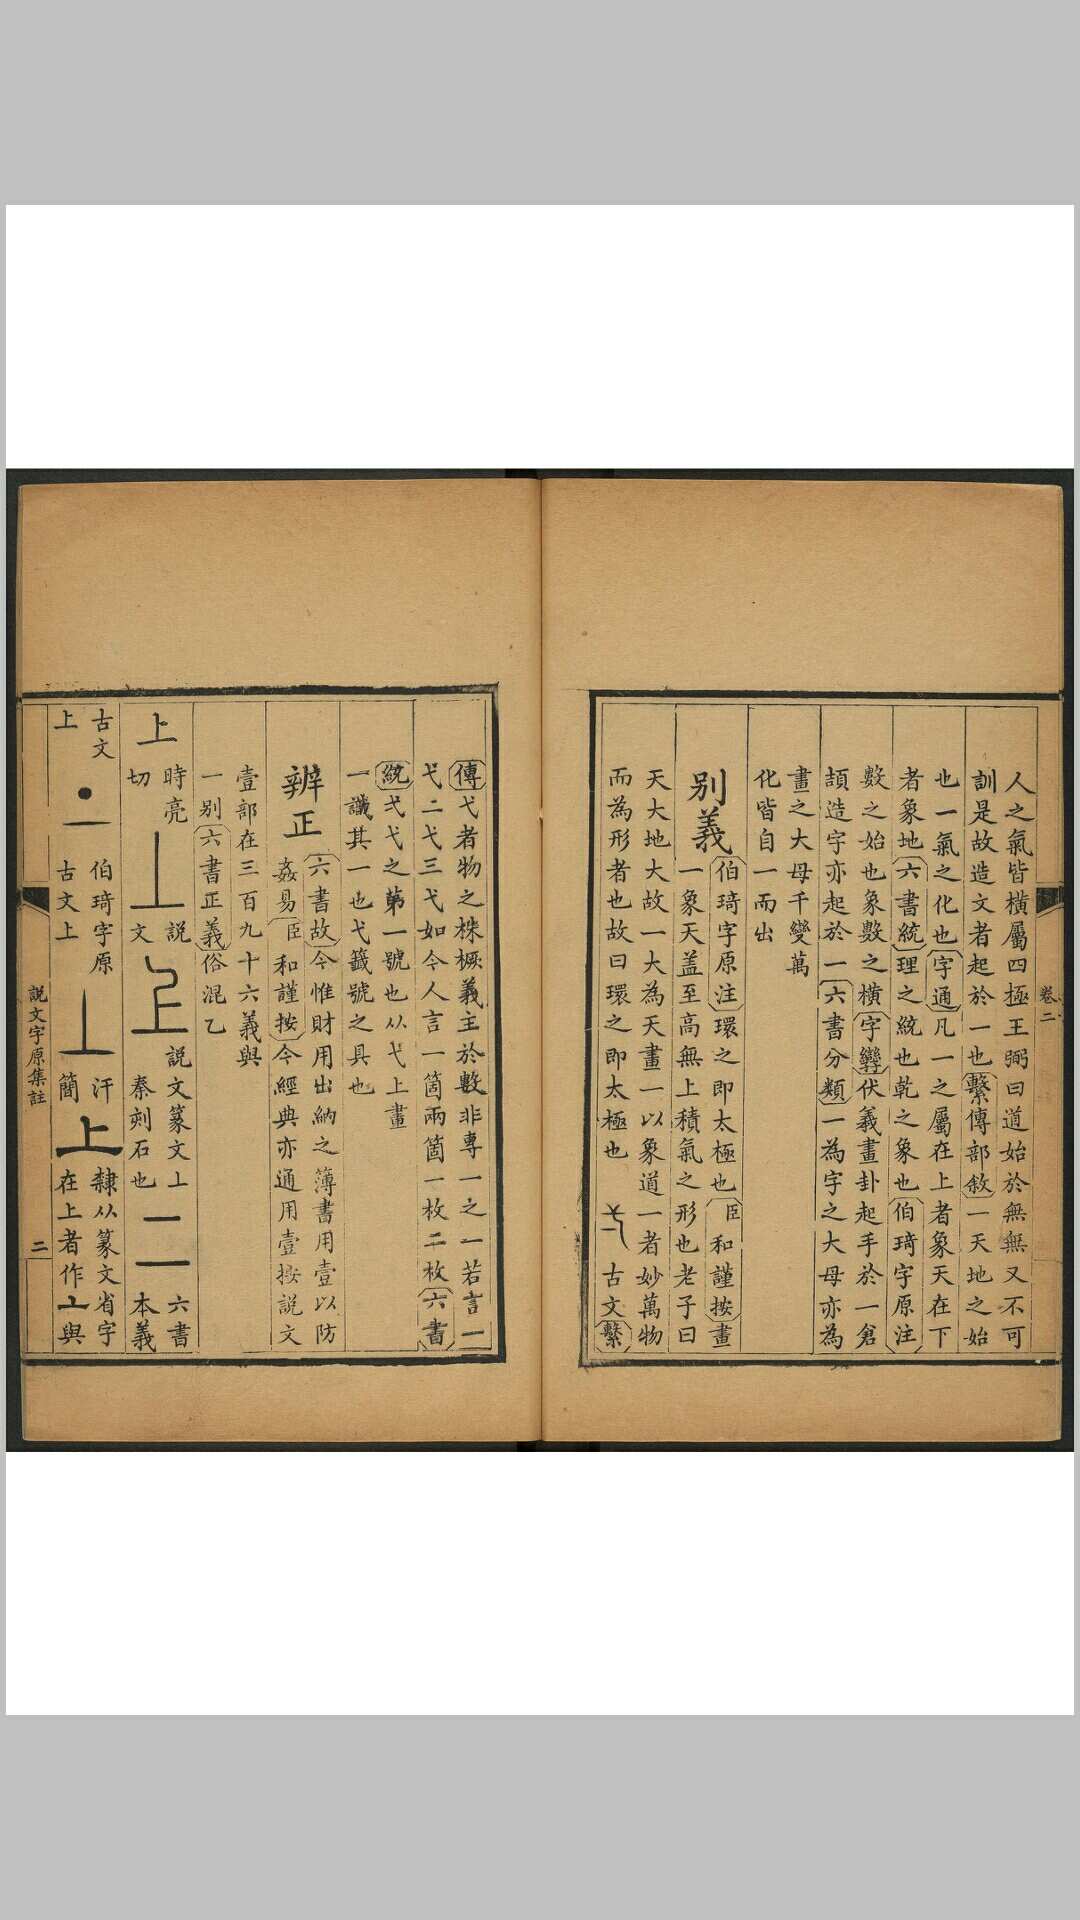 卷二
人之氣皆橫屬四極王弼曰道始於無無又不可
訓是故造文者起於一也繫傳部敘一天地之始
也一氣之化也字通凡一之屬在上者象天在下
者象地六書統理之統也乾之象也伯琦字原注
數之始也象數之橫字孿伏義畫卦起手於一倉
頡造字亦起於一六書分類一為字之大母亦為
畫之大母千變萬
化皆自一而出
別義
伯琦字原注環之即太極也臣和謹按畫
一象天蓋至高無上積氣之形也老子曰
天大地大故一大為天畫一以象道一者妙萬物
而為形者也故曰環之即太極也 弌 古文繫
傳弋者物之株橛義主於數非專一之一若言一
弋二弋三弋如今人言一箇兩箇一枚二枚六書
統弌弋之苐一號也从弋上畫
一讖其一也弋籤號之具也
辨正
六書故今惟財用出納之簿書用壹以防
姦易臣和謹按今經典亦通用壹按說文
壹部在三百九十六義與
一別六書正義俗混乙
上
時亮
切
說
文
說文篆文丄
秦刻石也
二
六書
本義
古文
上
伯琦字原
古文上
丄
汗
簡
上
隸从篆文省字
在上者作亠與
說文字原集註
二